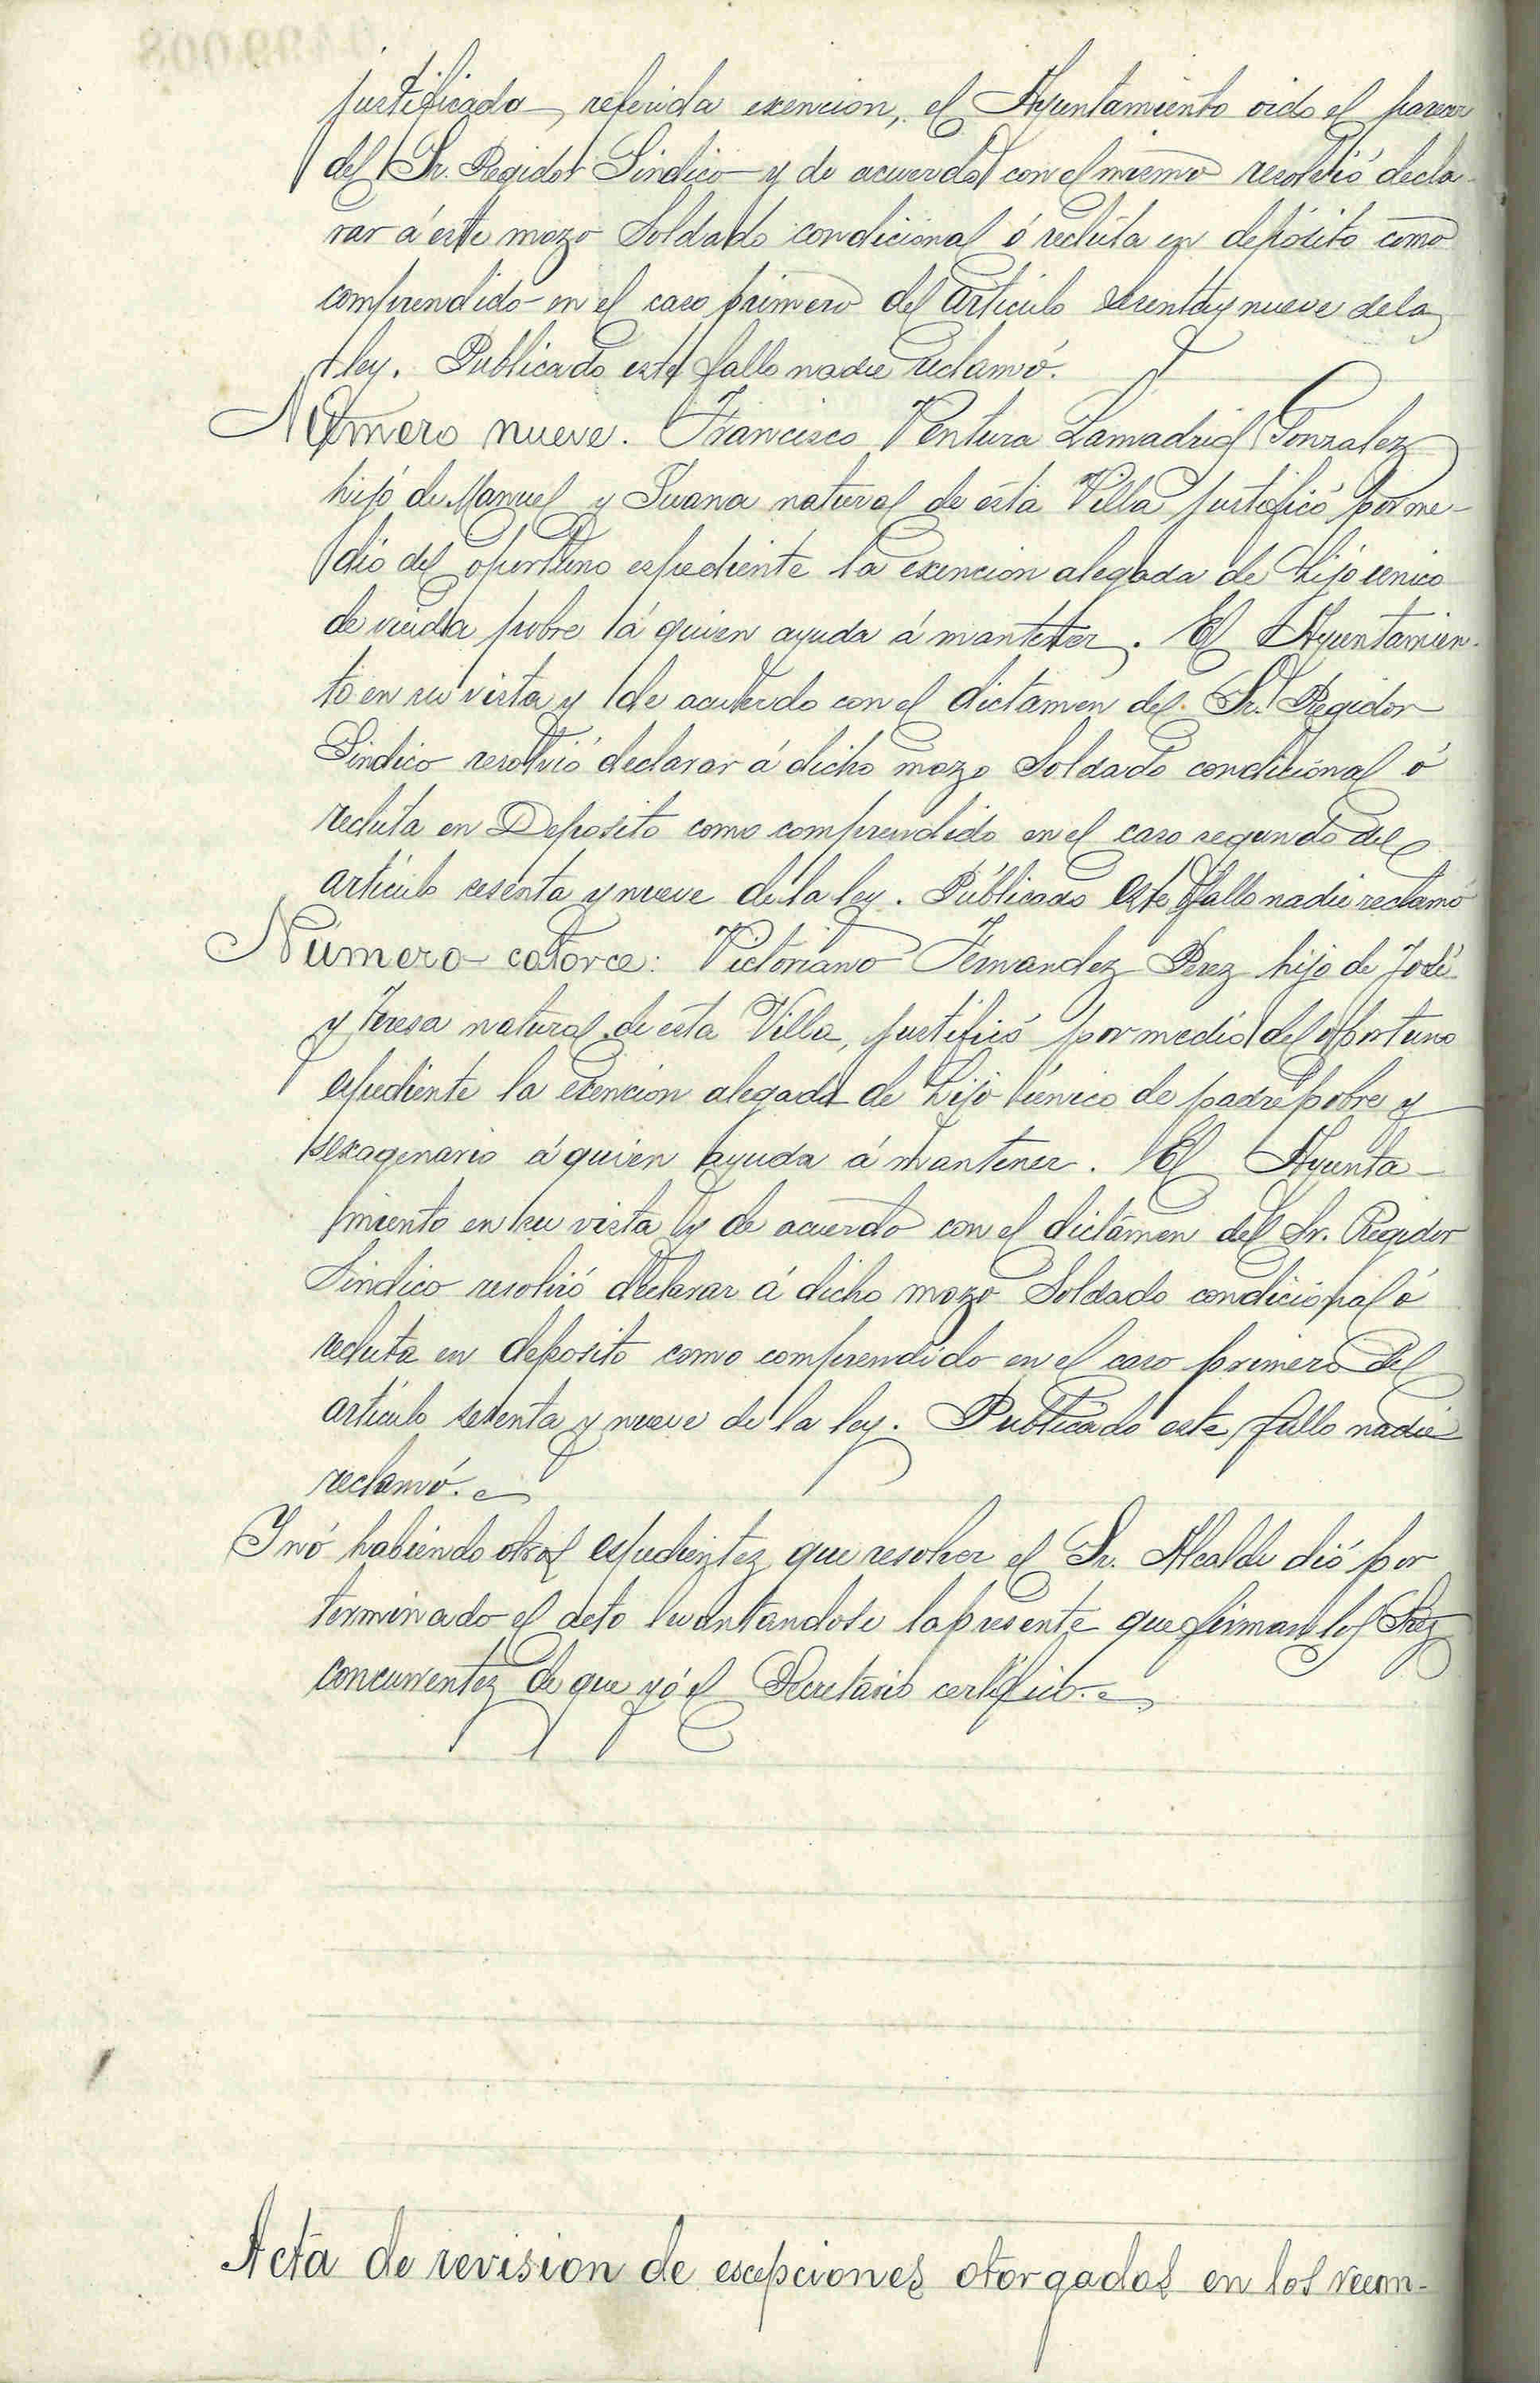 justificada referida exencion, el Ayuntamiento oido el parecer
del Sr. Regidor Sindico y de acuerdo con el mismo resolvió decla-
rar á este mozo Soldado condicional ó recluta en depósito como
comprendido en el caso primero del artículo sesenta y nueve de la
ley. Publicado este fallo nadie reclamó.
Número nueve. Francisco Ventura Lamadrid Gonzalez
hijo de Manuel y Juana natural de ésta Villa justificó por me-
dio del oportuno espediente la exencion alegada de hijo único
de viuda pobre á quien ayuda á mantener. El Ayuntamien-
to en su vista y de acuerdo con el dictamen del Sr. Regidor
Sindico resolvió declarar á dicho mozo Soldado condicional ó
recluta en Depósito como comprendido en el caso segundo del
artículo sesenta y nueve de la ley. Publicado este fallo nadie reclamó
Número catorce: Victoriano Fernandez Perez hijo de José
y Teresa natural de ésta Villa, justificó por medio del oportuno
espediente la exencion alegada de hijo único de padre pobre y
sexagenario á quien ayuda á mantener. El Ayunta-
miento en su vista y de acuerdo con el dictámen del Sr. Regidor
Sindico resolvió declarar á dicho mozo Soldado condicional ó
recluta en depósito como comprendido en el caso primero del
artículo sesenta y nueve de la ley. Publicado este fallo nadie
reclamó.
Y nó habiendo otros espedientes que resolver el Sr. Alcalde dió por
terminado el acto levantandose la presente que firman los Sres
concurrentes de que yó el Secretario certifico.
Acta de revision de escepciones otorgadas en los reem-